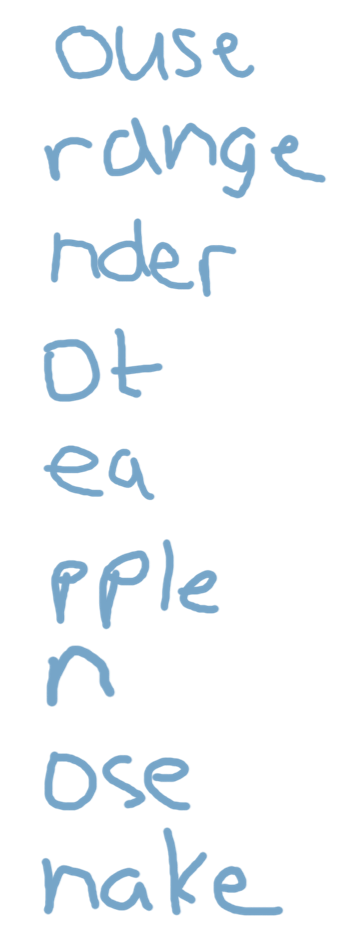 ouse
range
nder
ot
ea
pple
n
ose
nake